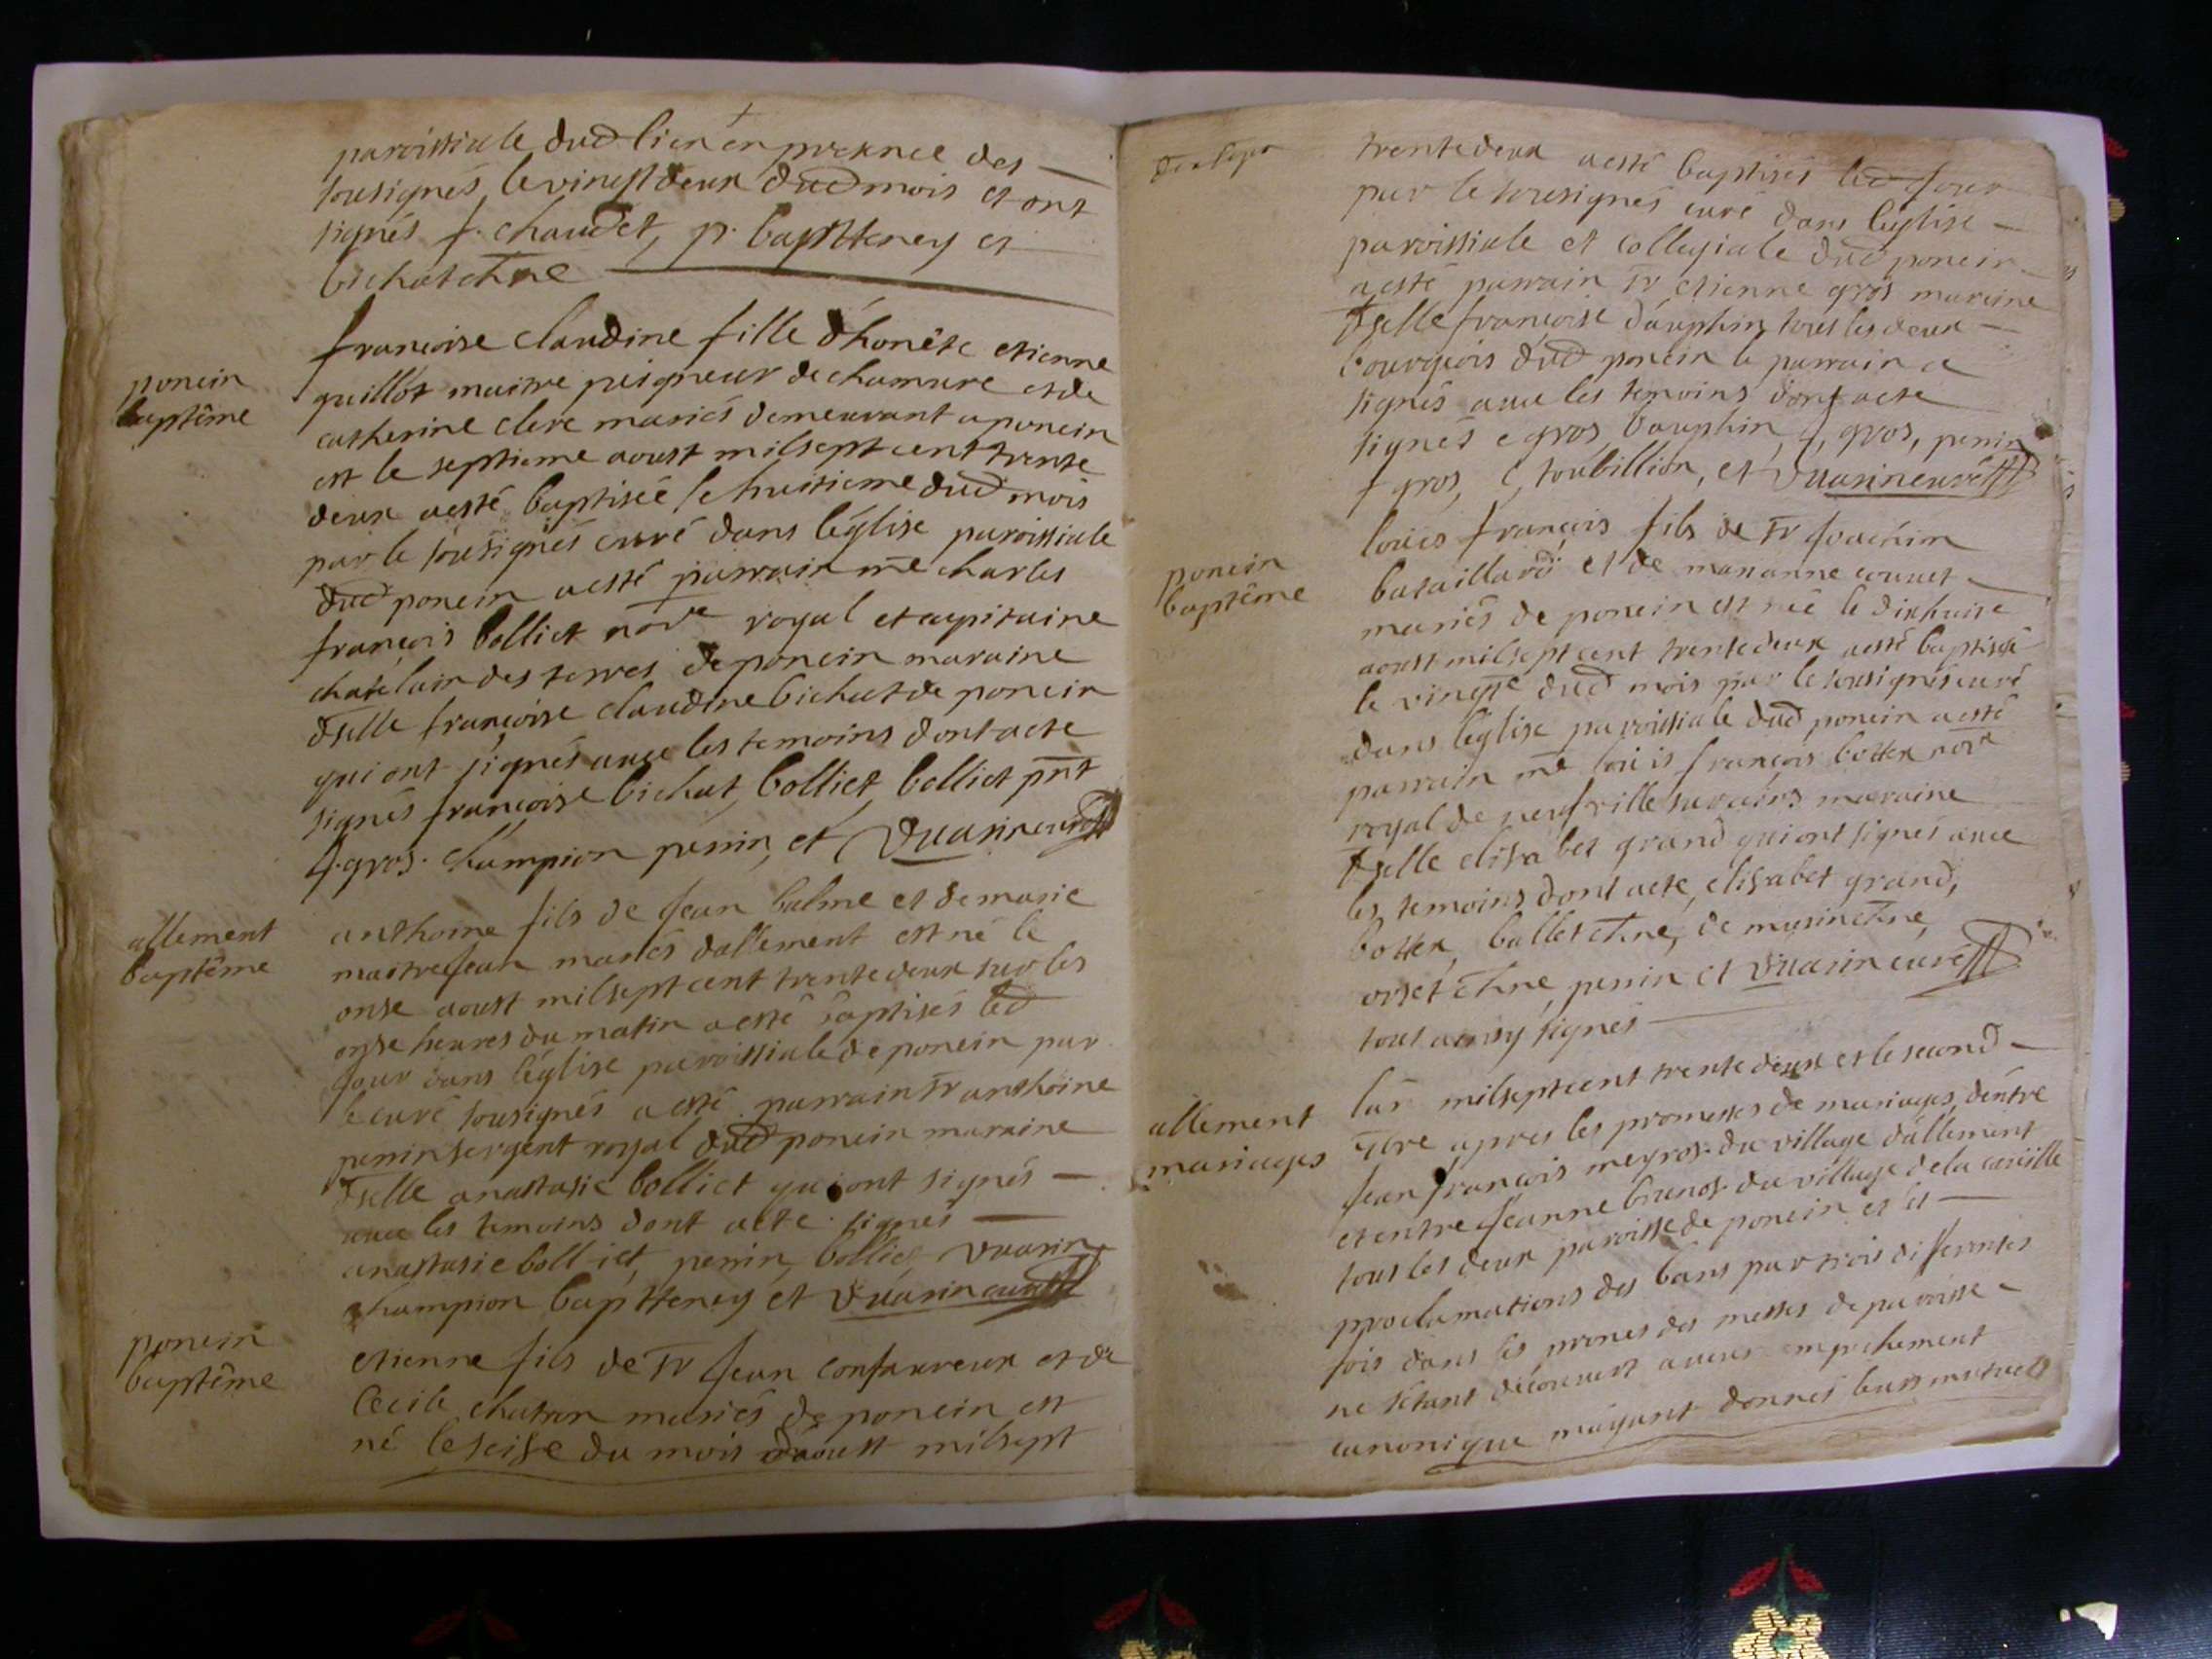 paroissiale dud lieu en presence des
sousignés, le vingt deux dud mois et ont
signés f. chaudet, p. baptteney et
bichat chne
ponein
baptême
francoise claudine fille d'honête etienne
guillot maitre peigneur de chamure et de
catherine clere mariés demeurant a ponein
est le septieme aoust milsept cent trente
deux aesté baptisée le huitieme dud mois
par le sousignés curé dans léglise paroissiale
dud ponein aesté parrain me charles
françois bolliet nore royal et capitaine
chatelain des terres de ponein maraine
dselle francoise claudine bichat de ponein
qui ont signés avec les temoins dont acte
signés francoise bichat, bolliet, bolliet pnt
f. gros. champion perrin, et Vuarin curé
allement
baptême
anthoine fils de jean balme et de marie
maitrejean mariés dallement est né le
onse aoust milsept cent trente deux sur les
onse heures du matin aesté baptisés led
jour dans léglise paroissiale de ponein par
le curé sousignés a esté parrain sr anthoine
perrin sergent royal dud ponein maraine
dselle anastasie bolliet qui ont signés
avec les temoins dont acte. signés
anastasie bolliet, perrin, bolliet, vuarin
champion baptteney et Vuarin curé
ponein
baptême
etienne fils de sr jean confavreux et de
Cecile chatron mariés de ponein est
né le seise du mois daoust milsept
trente deux aesté baptisés led jour
par le sousignés curé dans léglise
paroissiale et collegiale dud ponein
a esté parrain sr etienne gros maraine
dselle francoise dauphin tous les deux
bourgeois dud ponein le parrain a
signés avec les temoins dont acte
signés e gros, dauphin, f, gros, perrin
f gros, C, toubillion, et Vuarin curé
ponein
baptême
loüis françois fils de sr joachim
bataillard et de marianne couvet
mariés de ponein est née le dixhuit
aoust milsept cent trente deux aesté baptisé
le vingtre dud mois par le sousignés curé
dans léglise paroissiale dud ponein aesté
parrain me loüis françois bottex nore
royal de neufville sur ains maraine
dselle elisabet grand qui ont signés avec
les temoins dont acte, elisabet grand,
bottex, ballet chne, de marin chne,
orset chne, perrin et Vuarin curé
tout ainsy signés
allement
mariages
lan milsept cent trente deux et le second
7bre apres les promesses de mariages dentre
jean françois megros du village dallement
et entre jeanne brunot du village de la
tous les deux paroisse de ponein et
proclamations des bans par trois differentes
fois dans les prones des messes de paroisse
ne s'etant découvert aucun empechement
canonique mayant donnés leurs mutuels